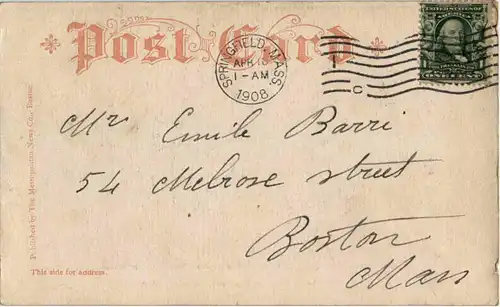 Post Card
SPRINGFIELD, MASS.
APR 13
1-AM
1908
C
UNITED STATES OF
AMERICA
ONE CENT
Mr Emile Barri
54 Melrose street
Boston
Mass
Published by The Metropolitan News Co., Boston.
This side for address.